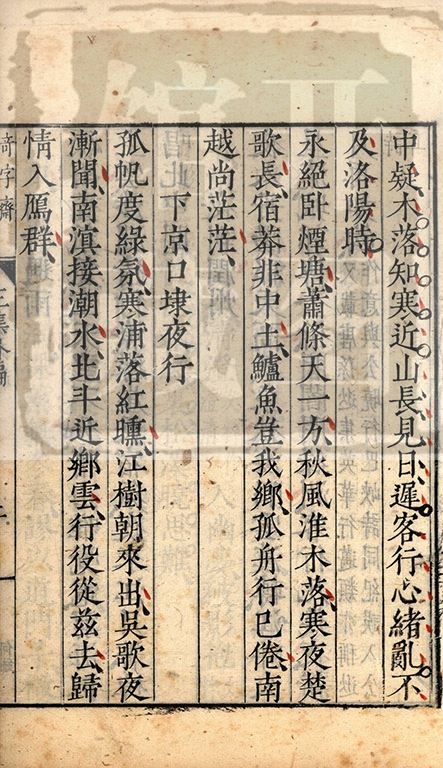 中疑木落知寒近山長見日遲客行心緒亂不
及洛陽時
永絕卧煙塘蕭條天一方秋風淮木落寒夜楚
歌長宿莽非中土鱸魚豈我鄉孤舟行已倦南
越尚茫茫
下京口埭夜行
孤帆度綠氛寒浦落紅曛江樹朝來出吳歌夜
漸聞南溟接潮水北斗近鄉雲行役從兹去歸
情入鴈群